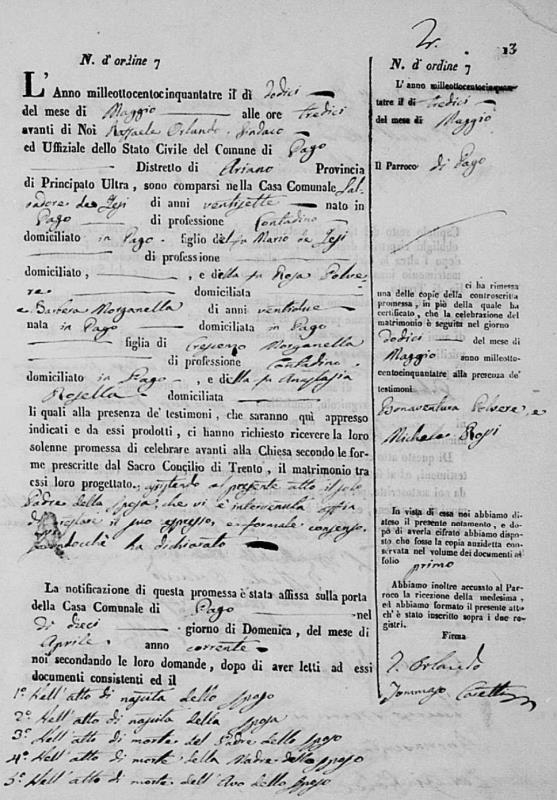 N. d'ordine 7
L'Anno milleottocentocinquantatre il dì dodici
del mese di Maggio alle ore tredici
avanti di Noi Raffaele Orlando Sindaco
ed Uffiziale dello Stato Civile del Comune di Pago
Distretto di Ariano Provincia
di Principato Ultra, sono comparsi nella Casa Comunale Sal-
vadore de di anni ventisette nato in
Pago di professione Contadino
domiciliato in Pago figlio del fu Mario de
di professione
domiciliato, , e della fu Rosa Polve-
re domiciliata
e Barbera Morganella di anni ventidue
nata in Pago domiciliata in Pago
figlia di Crescenzo Morganella
di professione Contadino
domiciliato in Pago , e della fu Anastasia
Rosella domiciliata
li quali alla presenza de' testimoni, che saranno quì appresso
indicati e da essi prodotti, ci hanno richiesto ricevere la loro
solenne promessa di celebrare avanti alla Chiesa secondo le for-
me prescritte dal Sacro Concilio di Trento, il matrimonio tra
essi loro progettato. assistendo al presente atto il solo
Padre della sposa, che vi è intervenuto affin
di prestare il suo espresso, e formale consenso
ha dichiarato
La notificazione di questa promessa è stata affissa sulla porta
della Casa Comunale di Pago nel
dì dieci giorno di Domenica, del mese di
Aprile anno corrente
noi secondando le loro domande, dopo di aver letti ad essi
documenti consistenti ed il
1° Nell'atto di nascita dello sposo
2° Nell'atto di nascita della sposa
3° Nell'atto di morte del Padre dello sposo
4° Nell'atto di morte della Madre dello sposo
5° Nell'atto di morte dell'Avo dello sposo
13
N. d'ordine 7
L'anno milleottocentocinquan-
tatre il dì tredici
del mese di Maggio
Il Parroco di Pago
ci ha rimessa
una delle copie della controscritta
promessa, in piè della quale ha
certificato, che la celebrazione del
matrimonio è seguita nel giorno
dodici del mese di
Maggio anno milleotto-
centocinquantatre alla presenza de'
testimoni
Bonaventura Polvere e
Michele Rossi
In vista di essa noi abbiamo di-
steso il presente notamento, e do-
po di averla cifrato abbiamo dispo-
sto che fosse la copia anzidetta con-
servata nel volume dei documenti al
folio
primo
Abbiamo inoltre accusato al Par-
roco la ricezione della medesima,
ed abbiamo formato il presente atto
ch'è stato inscritto sopra i due re-
gistri.
Firma
Orlando
Tommaso